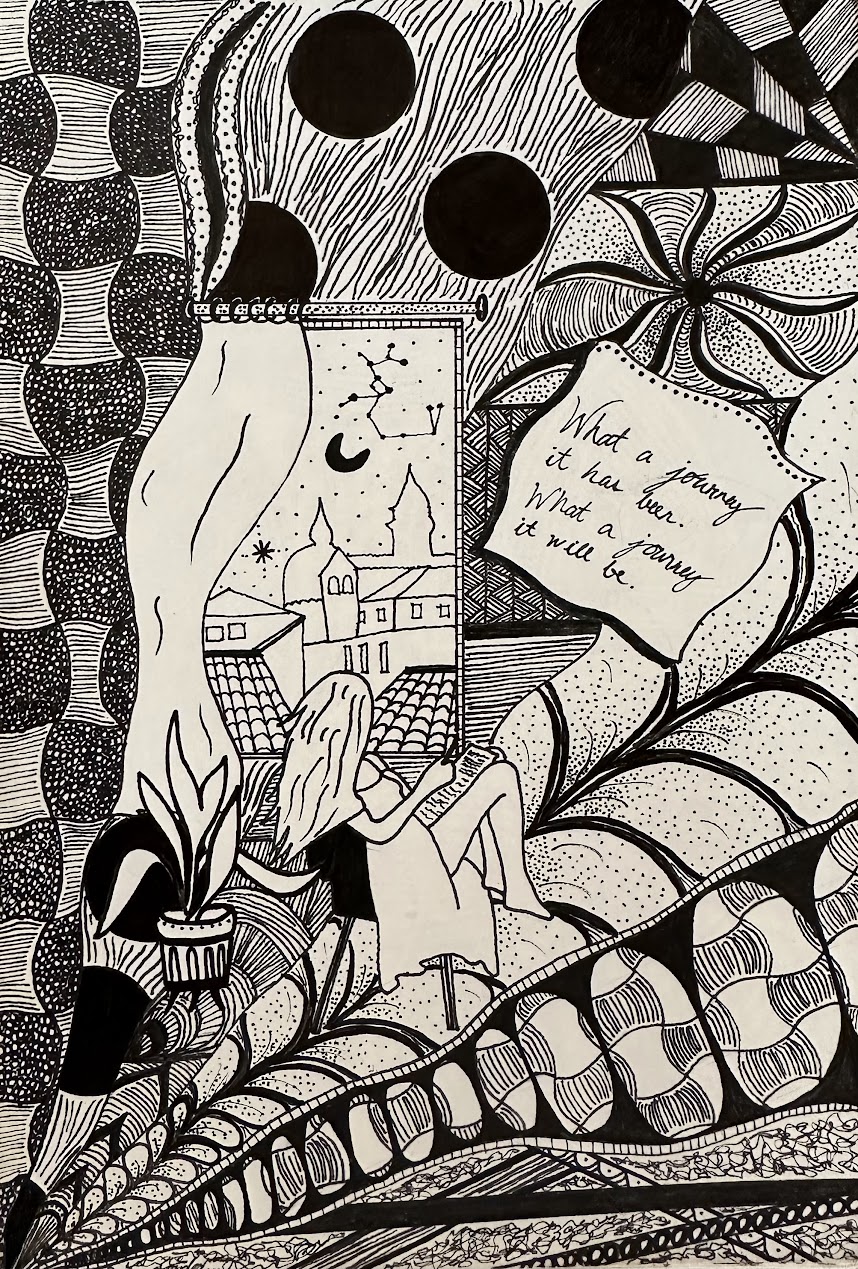 What a journey
it has been.
What a journey
it will be.